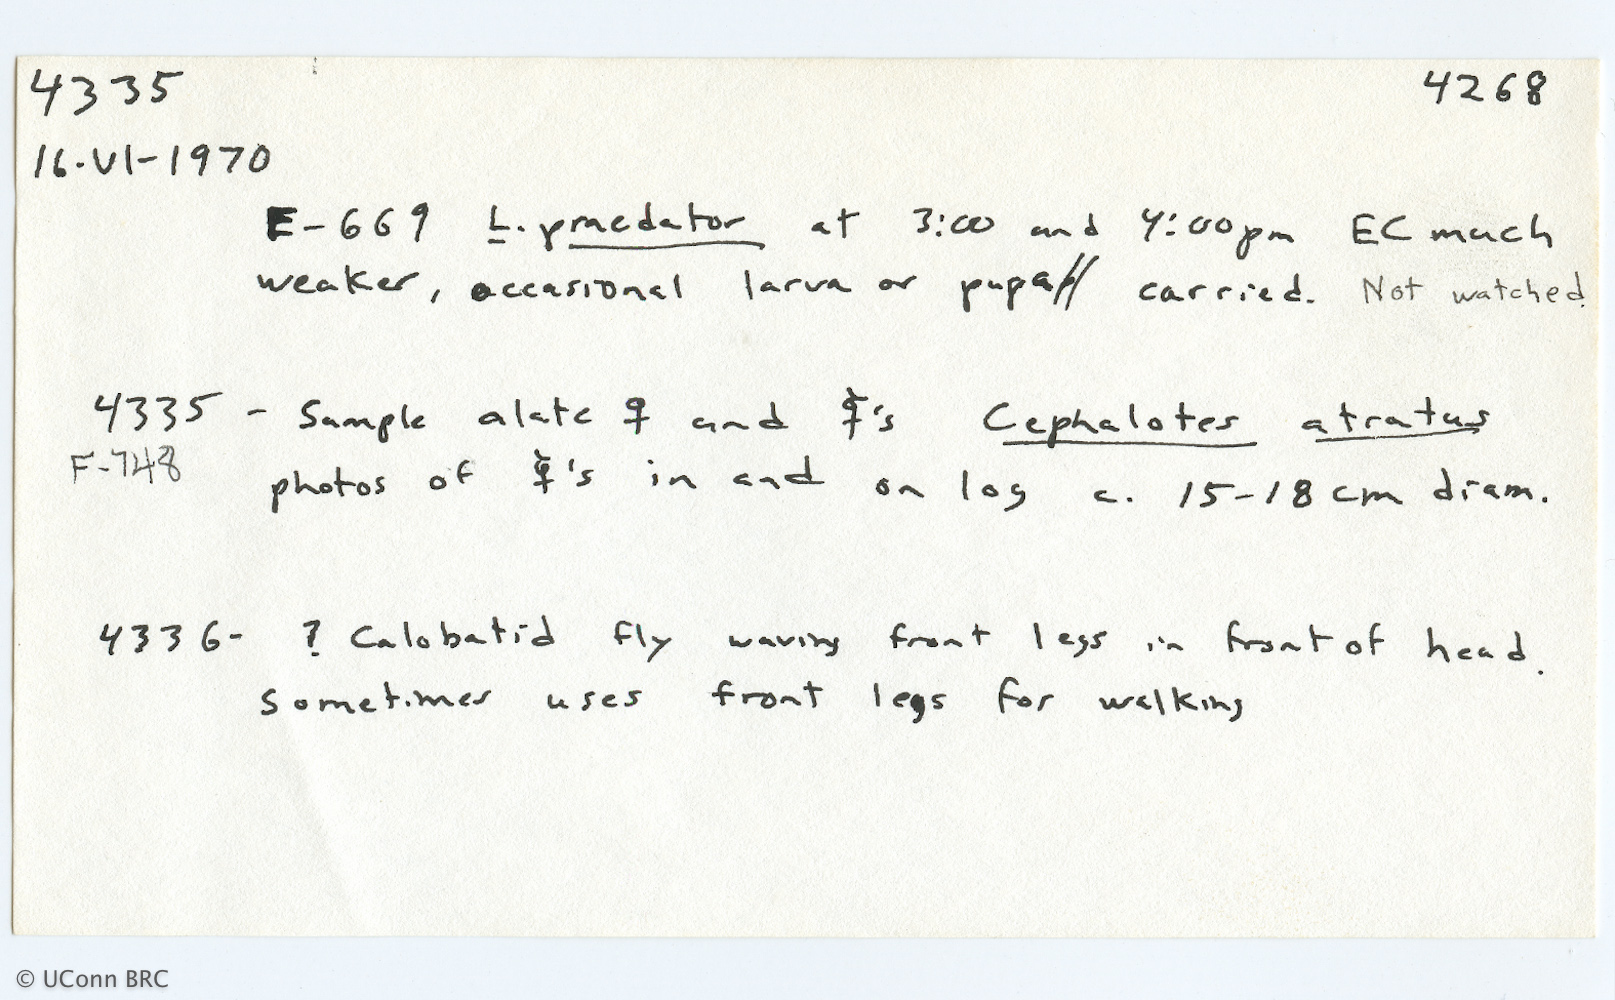 4335 4268
16-VI-1970
E-669 L. praedator at 3:00 and 4:00pm EC much
weaker, occasional larva or pupa carried. Not watched.
4335 - Sample alate ♀ and ☿'s Cephalotes atratus
F-748
photos of ☿'s in and on log c. 15-18 cm diam.
4336- ? Calobatid fly waving front legs in front of head.
Sometimes uses front legs for walking
© UConn BRC